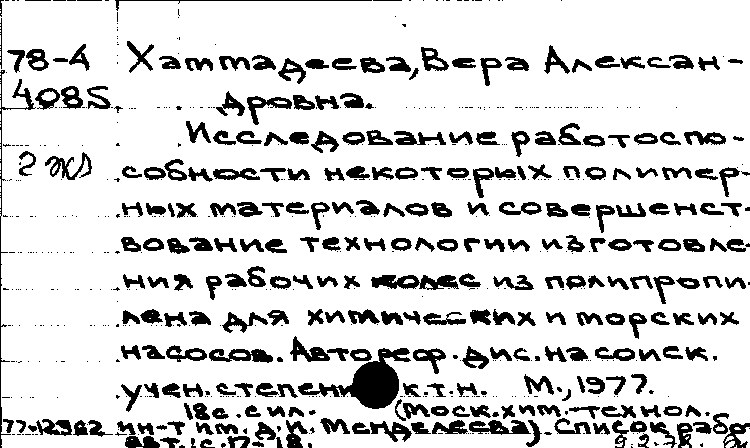 78-4 Хаттадеева, Вера Алексан-
4085 дровна.
Исследование работоспо-
2 экз собности некоторых полимер-
ных материалов и совершенст-
вование технологии изготовле-
ния рабочих колес из полипропи-
лена для химических и морских
насосов. Автореф. дис. на соиск.
учен. степени к.т.н. М., 1977.
18с. с ил. (Моск. хим.-технол.
77-12362 ин-т им. Д.И. Менделеева). Список рабо
авт.: с. 17-18. 9.2.78.